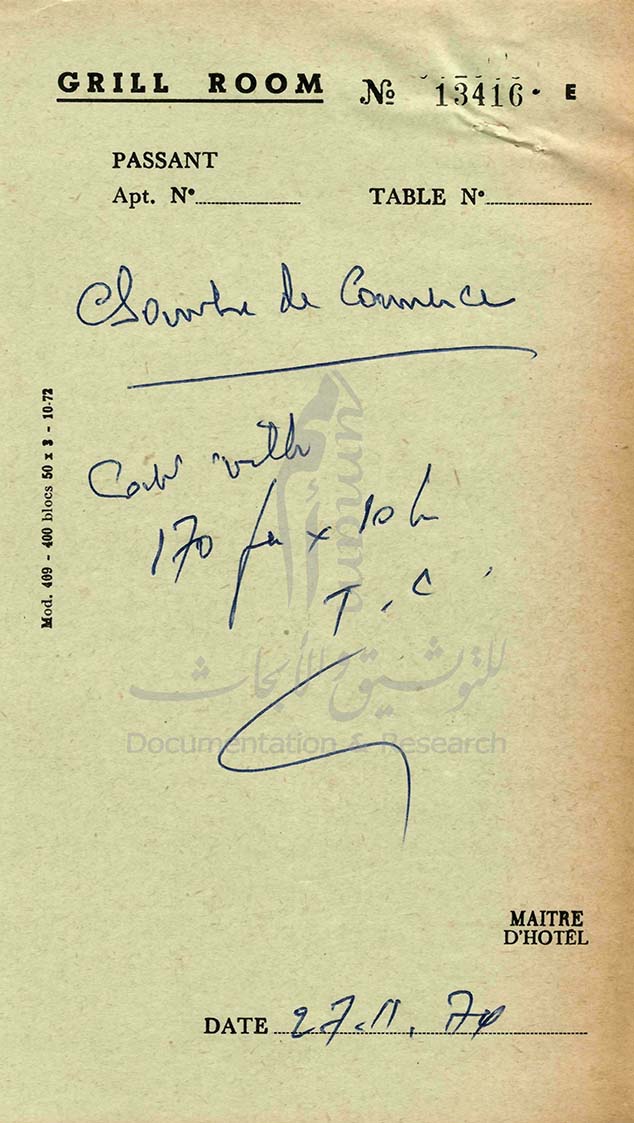 GRILL ROOM Nº 13416 E
PASSANT
Apt. N° TABLE N°
Chambre de Commerce
170 x 10
T. C
Mod. 409 - 400 blocs 50 x 3 - 10-72
أمم
umam
للتوثيق والأبحاث
Documentation & Research
MAITRE
D'HOTEL
DATE 27.11.74